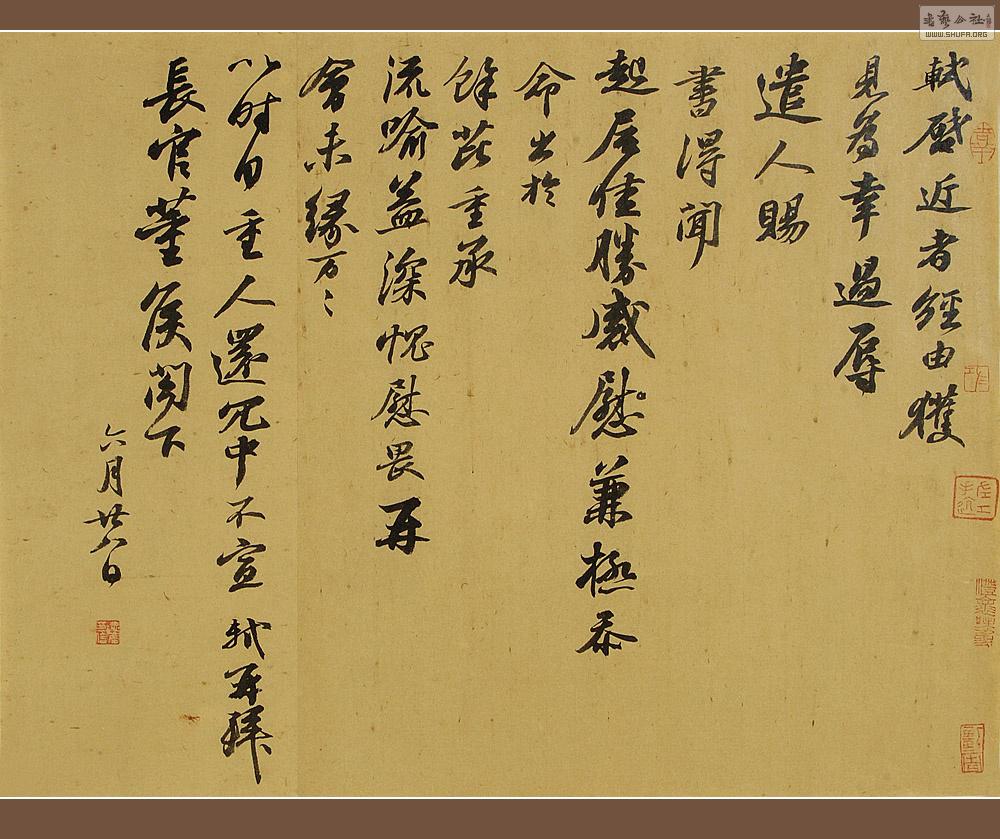 軾啓近者經由獲
見爲幸過辱
遣人賜
書得聞
起居佳勝感慰兼極忝
命出於
餘芘重承
流喻益深愧慰畏再
會未緣万〻
以时自重人還冗中不宣軾再拜
長官董侯閣下
六月廿八日
WWW.SHUFA.ORG